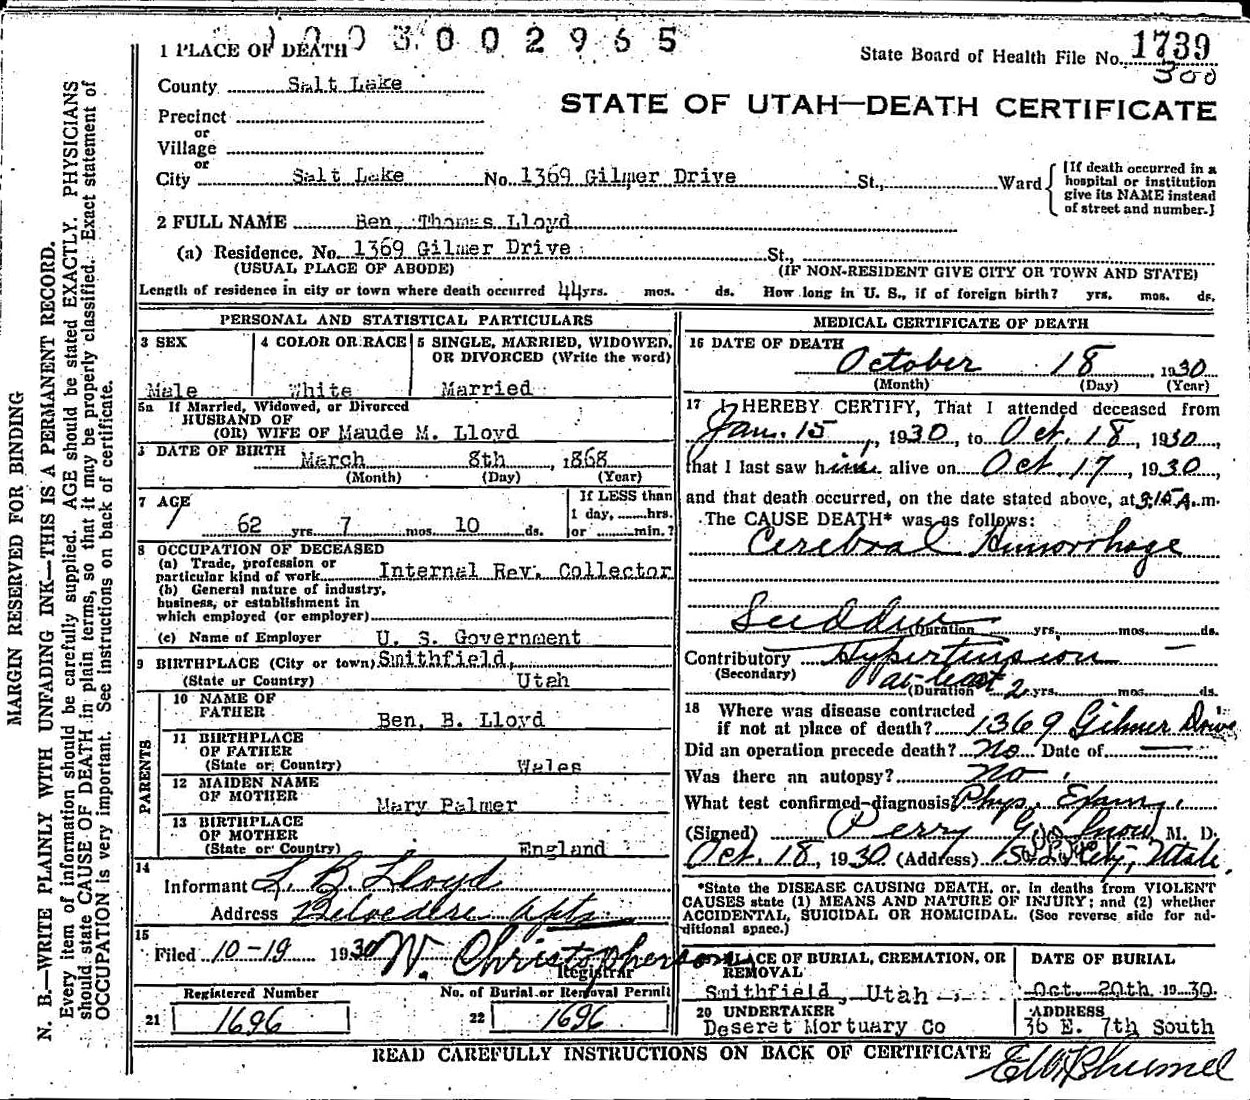 1003002965
1 PLACE OF DEATH
State Board of Health File No. 1739
300
County Salt Lake
STATE OF UTAH—DEATH CERTIFICATE
Precinct
or
Village
or
City Salt Lake No. 1369 Gilmer Drive St., Ward
[If death occurred in a hospital or institution give its NAME instead of street and number.]
2 FULL NAME Ben, Thomas Lloyd
(a) Residence. No. 1369 Gilmer Drive St.,
(USUAL PLACE OF ABODE) (IF NON-RESIDENT GIVE CITY OR TOWN AND STATE)
Length of residence in city or town where death occurred 44 yrs. mos. ds. How long in U. S., if of foreign birth? yrs. mos. ds.
PERSONAL AND STATISTICAL PARTICULARS
3 SEX 4 COLOR OR RACE 5 SINGLE, MARRIED, WIDOWED,
OR DIVORCED (Write the word)
Male White Married
5a If Married, Widowed, or Divorced
HUSBAND OF
(OR) WIFE OF Maude M. Lloyd
DATE OF BIRTH March 8th, 1868
(Month) (Day) (Year)
7 AGE
If LESS than
1 day, hrs.
62 yrs. 7 mos. 10 ds. or min.?
8 OCCUPATION OF DECEASED
(a) Trade, profession or
particular kind of work Internal Rev. Collector
(b) General nature of industry,
business, or establishment in
which employed (or employer)
(c) Name of Employer U. S. Government
9 BIRTHPLACE (City or town) Smithfield,
(State or Country) Utah
PARENTS
10 NAME OF
FATHER Ben, B. Lloyd
11 BIRTHPLACE
OF FATHER
(State or Country) Wales
12 MAIDEN NAME
OF MOTHER Mary Palmer
13 BIRTHPLACE
OF MOTHER
(State or Country) England
14
Informant L. B. Lloyd
Address Belvedere Apts
15
Filed 10-19 1930 W. Christopherson
Registrar
Registered Number No. of Burial or Removal Permit
21 1696 22 1696
MEDICAL CERTIFICATE OF DEATH
16 DATE OF DEATH
October 18, 1930
(Month) (Day) (Year)
17 I HEREBY CERTIFY, That I attended deceased from
Jan. 15, 1930, to Oct. 18, 1930,
that I last saw him alive on Oct. 17, 1930
and that death occurred, on the date stated above, at 3:15 A. m.
The CAUSE DEATH* was as follows:
Cerebral Hemorrhage
Sudden (Duration yrs. mos. ds.
Contributory Hypertension
(Secondary)
at least
(Duration 2 yrs. mos. ds.
18 Where was disease contracted
if not at place of death? 1369 Gilmer Drive
Did an operation precede death? No Date of —
Was there an autopsy? No
What test confirmed diagnosis Phys. Exam.
(Signed) Perry G. Snow, M. D.
Oct. 18, 1930 (Address) S. L. City, Utah.
*State the DISEASE CAUSING DEATH, or, in deaths from VIOLENT
CAUSES state (1) MEANS AND NATURE OF INJURY; and (2) whether
ACCIDENTAL, SUICIDAL OR HOMICIDAL. (See reverse side for ad-
ditional space.)
PLACE OF BURIAL, CREMATION, OR
REMOVAL
DATE OF BURIAL
Smithfield, Utah Oct. 20th 1930.
20 UNDERTAKER ADDRESS
Deseret Mortuary Co 36 E. 7th South
READ CAREFULLY INSTRUCTIONS ON BACK OF CERTIFICATE
MARGIN RESERVED FOR BINDING
N. B.—WRITE PLAINLY WITH UNFADING INK—THIS IS A PERMANENT RECORD.
Every item of information should be carefully supplied. AGE should be stated EXACTLY. PHYSICIANS
should state CAUSE OF DEATH in plain terms, so that it may be properly classified. Exact statement of
OCCUPATION is very important. See instructions on back of certificate.